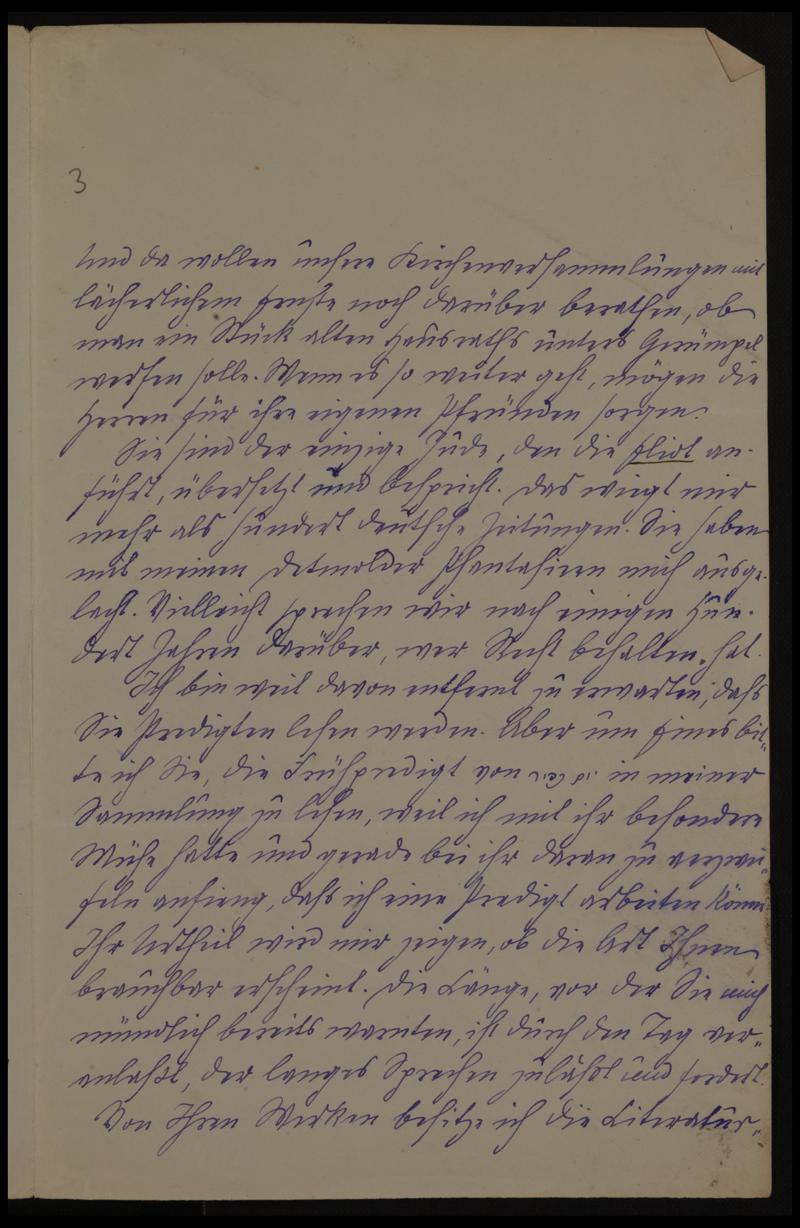 3
Und da wollen unsere Kirchenversammlungen mit
lächerlichem Ernste noch darüber berathen, ob
man ein Stück alten Hausraths unters Gerümpel
werfen solle. Wenn es so weiter geht, mögen die
Herren für ihre eigenen Pfründen sorgen.
Sie sind der einzige Jude, den die Eliot an-
führt, übersetzt und bespricht. Das wiegt mir
mehr als hundert deutsche Zeitungen. Sie haben
mit meinen Detmolder Phantasieen mich ausge-
lacht. Vielleicht sprechen wir nach einigen Hun-
dert Jahren darüber, wer Recht behalten hat.
Ich bin weit davon entfernt zu erwarten, daß
Sie Predigten lesen werden. Aber um Eines bit-
te ich Sie, die Frühpredigt von in meiner
Sammlung zu lesen, weil ich mit ihr besondere
Mühe hatte und gerade bei ihr daran zu verzwei-
feln anfieng, daß ich eine Predigt arbeiten könne.
Ihr Urtheil wird mir zeigen, ob die Art Ihnen
brauchbar erscheint. Die Länge, vor der Sie mich
mündlich bereits warnten, ist durch den Tag ver-
anlaßt, der langes Sprechen zuläßt und fordert.
Von Ihren Werken besitze ich die Literatur-